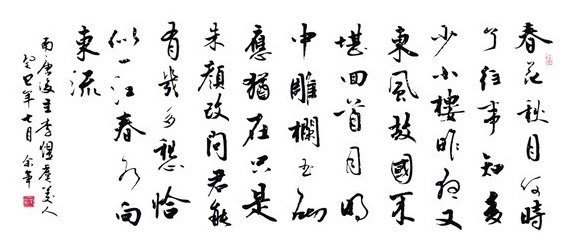 春花秋月何時
了往事知多
少小樓昨夜又
東風故國不
堪回首月明
中雕欄玉砌
應猶在只是
朱顏改問君能
有幾多愁恰
似一江春水向
東流
南唐後主李煜虞美人
癸巳年七月